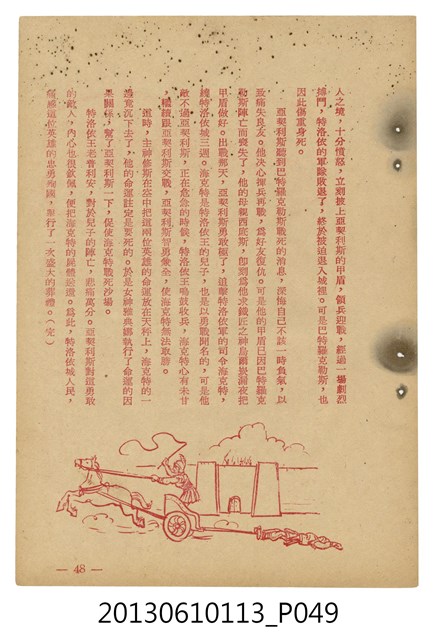 人之境，十分憤怒，立刻披上亞契利斯的甲盾，領兵迎戰，經過一場劇烈
搏鬥，特洛依的軍隊敗退了，終於被迫退入城裡。可是巴特羅克勒斯，也
因此傷重身死。
亞契利斯聽到巴特羅克勒斯戰死的消息，深悔自己不該一時負氣，以
致痛失良友。他決心揮兵再戰，為好友復仇。可是他的甲盾已因巴特羅克
勒斯陣亡而喪失了，他的母親西底斯，即刻為他求鐵匠之神烏爾崁漏夜把
甲盾做好。出戰那天，亞契利斯勇敢極了，追擊特洛依軍的司令海克特，
繞特洛依城三週。海克特是特洛依王的兒子，也是以勇戰聞名的，可是他
敵不過亞契利斯，正在危急的時候，特洛依王鳴鼓收兵，海克特心有未甘
，繼續跟亞契利斯交戰，亞契利斯智勇雙全，使海克特無法取勝。
這時，主神修斯在空中把這兩位英雄的命運放在天秤上，海克特的一
邊竟沉下去了，他的命運註定是要死的。於是女神雅典娜執行了命運的因
果關係，幫了亞契利斯一下，促使海克特戰死沙場。
特洛依王老普利安，對於兒子的陣亡，悲痛萬分。亞契利斯對這勇敢
的敵人，內心也很欽佩，便把海克特的屍體送還。為此，特洛依城人民，
為這位英雄的忠勇殉國，舉行了一次盛大的葬禮。（完）
— 48 —
20130610113_P049